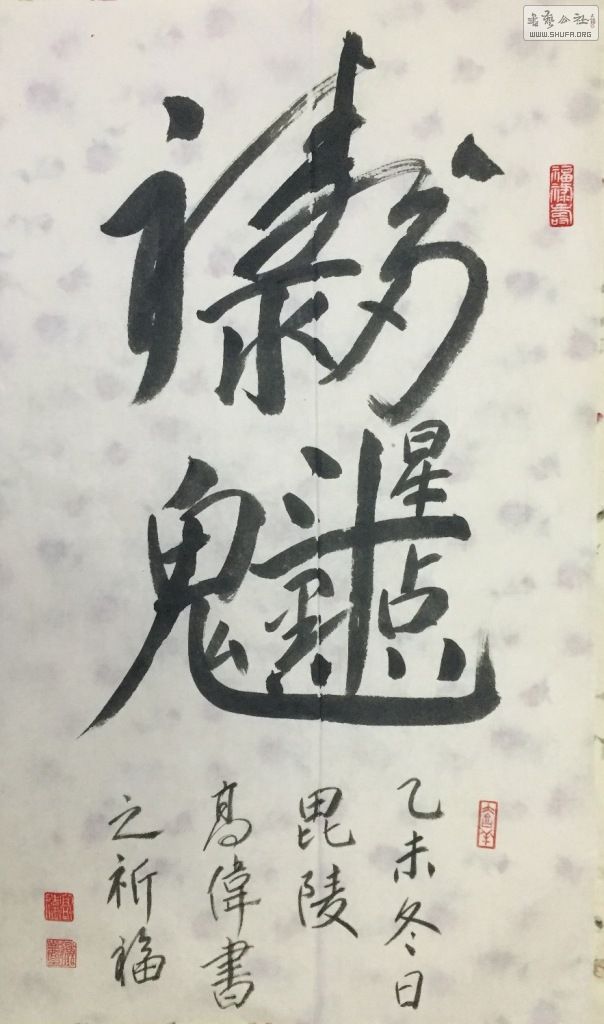 福祿壽
魁星點斗
乙未冬日
毘陵
高偉書
之祈福
書藝公社
WWW.SHUFA.ORG